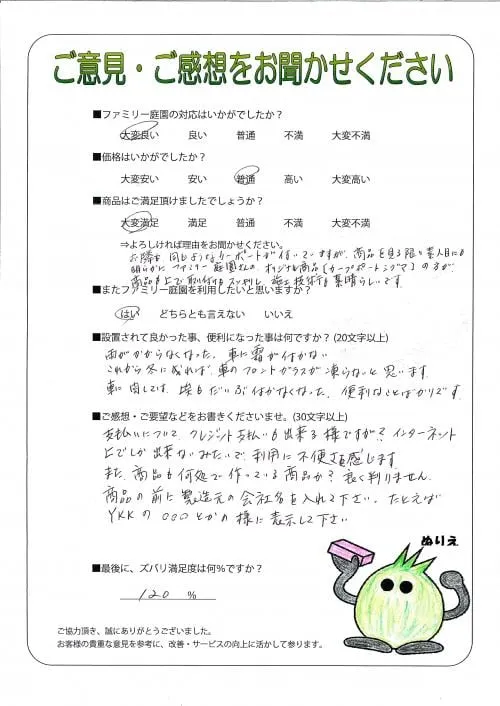 ご意見・ご感想をお聞かせください
■ファミリー庭園の対応はいかがでしたか？
大変良い 良い 普通 不満 大変不満
■価格はいかがでしたか？
大変安い 安い 普通 高い 大変高い
■商品はご満足頂けましたでしょうか？
大変満足 満足 普通 不満 大変不満
⇒よろしければ理由をお聞かせください。
お隣も同じようなカーポートが付いていますが、商品を見る限り素人目にも
明らかにファミリー庭園さんの、オリジナル商品【カーポートシグマ】の方が、
商品も上で取付けもスッキリし、施工技術も素晴らしいです。
■またファミリー庭園を利用したいと思いますか？
はい どちらとも言えない いいえ
■設置されて良かった事、便利になった事は何ですか？(20文字以上)
雨がかからなくなった。車に霜が付かない
これから冬になれば、車のフロントガラスが凍らないと思います。
車に関しては、埃もだいぶ付かなくなった。便利なことばかりです
■ご感想・ご要望などをお書きくださいませ。(30文字以上)
支払いについて、クレジット支払いも出来る様ですが？インターネット
上でしか出来ないみたいで、利用に不便さを感じます
また、商品も何処で作っている商品か？良く判りません。
商品の前に製造元の会社名を入れて下さい。たとえば
YKKの〇〇〇とかの様に表示して下さい
ぬりえ
■最後に、ズバリ満足度は何％ですか？
120 %
ご協力頂き、誠にありがとうございました。
お客様の貴重な意見を参考に、改善・サービスの向上に活かして参ります。